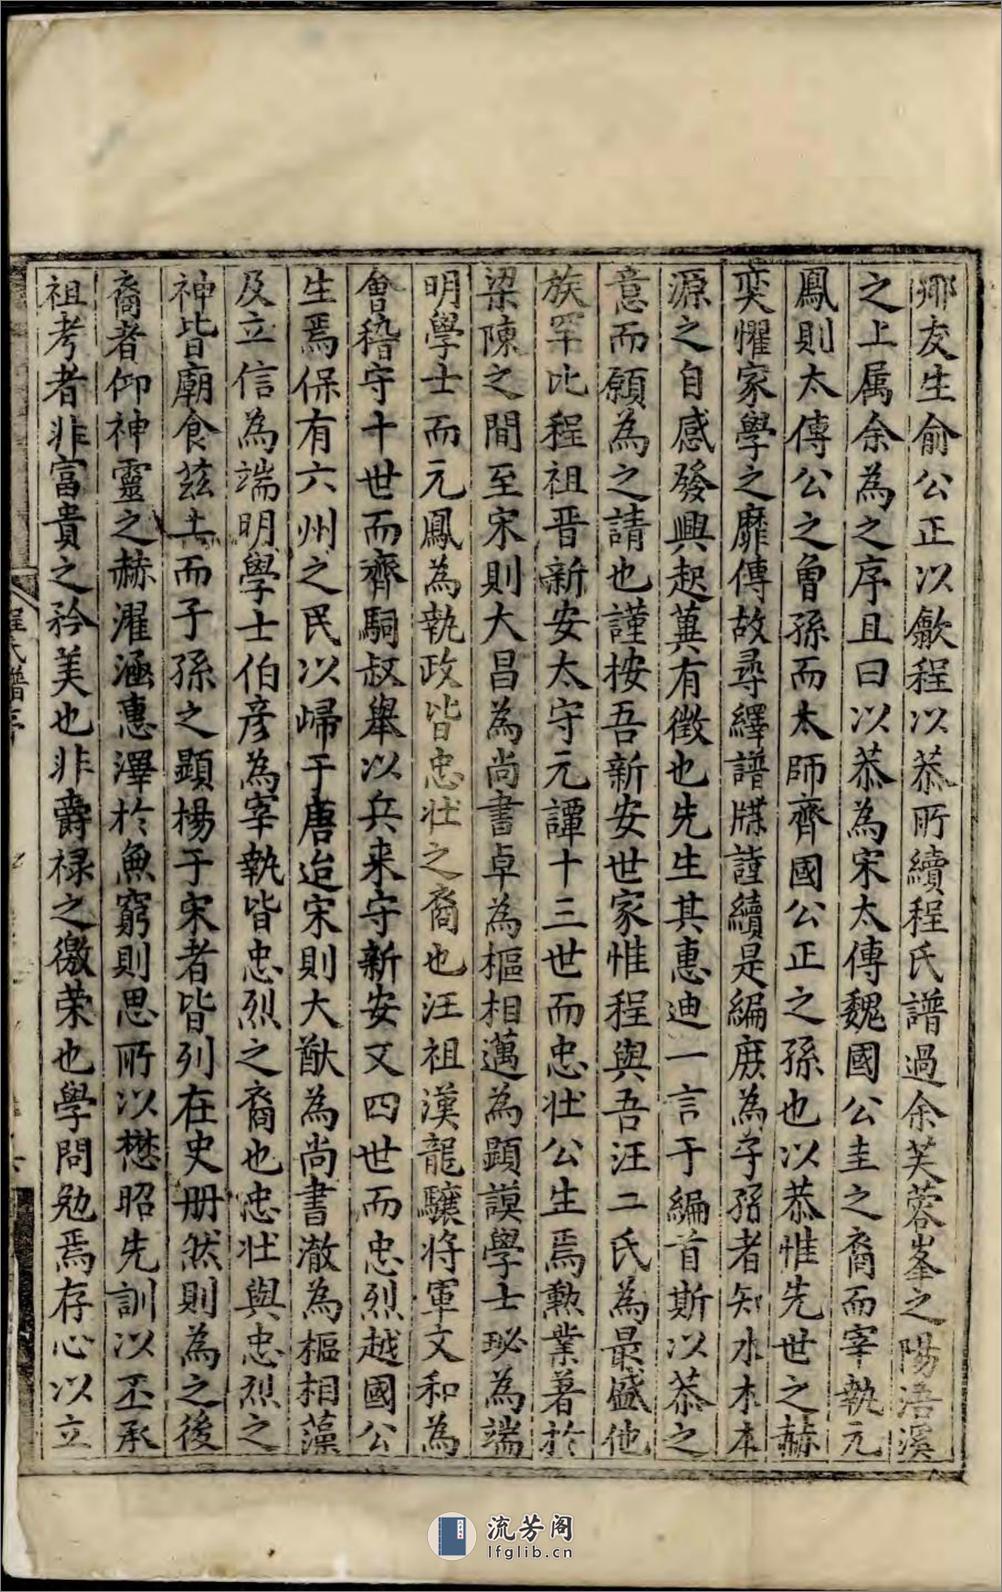 鄉友生俞公正以歙程以恭所續程氏譜過余芙蓉峯之陽浯溪
之上属余為之序且曰以恭為宋太傅魏國公圭之裔而宰執元
鳳則太傅公之曾孫而太師齊國公正之孫也以恭惟先世之赫
奕懼家學之靡傳故尋繹譜牒謹續是編庶為子孫者知水木本
源之自感發興起冀有徵也先生其惠迪一言于編首斯以恭之
意而願為之請也謹按吾新安世家惟程與吾汪二氏為最盛他
族罕比程祖晋新安太守元譚十三世而忠壯公生焉勲業著於
梁陳之間至宋則大昌為尚書卓為樞相邁為顕謨學士珌為端
明學士而元鳳為執政皆忠壯之裔也汪祖漢龍驤將軍文和為
會稽守十世而齊駉叔舉以兵来守新安又四世而忠烈越國公
生焉保有六州之民以歸于唐迨宋則大猷為尚書澈為樞相藻
及立信為端明學士伯彥為宰執皆忠烈之裔也忠壯與忠烈之
神皆廟食茲土而子孫之顕楊于宋者皆列在史册然則為之後
裔者仰神靈之赫濯涵惠澤於無窮則思所以懋昭先訓以丕承
祖考者非富貴之矜美也非爵禄之徼荣也學問勉焉存心以立
程氏譜序
流芳阁
lfglib.cn